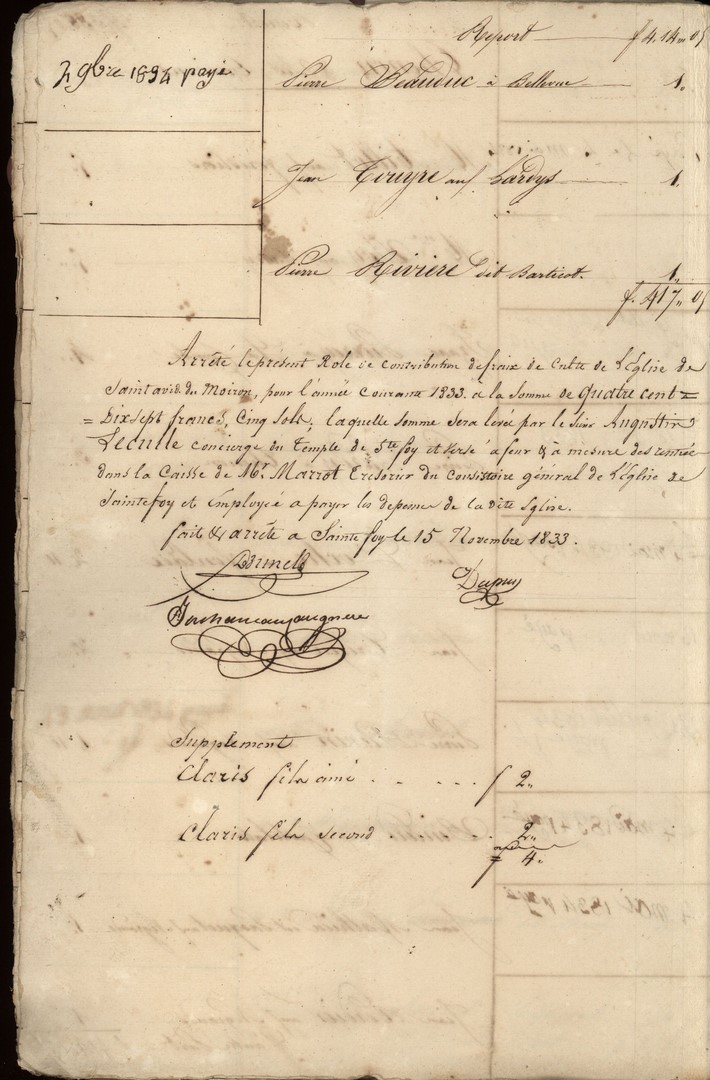 Report f. 414.. 05
2 9bre 1834 payé
Pierre Beauduc à Bellevue 1.
Jean Truyre aux Lardys 1.
Pierre Rivière dit Barticot. 1..
f. 417.. 05
Arrêté le présent Role de contribution de fraix de Culte de L'Église de
Saint avid du Moiron, pour l'année courante 1833. a la somme de quatre cent =
= Dix sept francs, Cinq Sols; laquelle somme sera levée par le Sieur Augustin
Leculle concierge du Temple de Ste foy et versé a feur & à mesure des rentrée
dans la Caisse de Mr. Marrot Tresorier du Consistoire général de L'Église de
Saintefoy et Employée a payer les depenses de la dite Eglise.
fait & arrêté a Sainte foy le 15 Novembre 1833.
Dupuy
Supplement
Claris fils ainé . . . . . f 2..
Claris fils second . . . 2..
f 4..